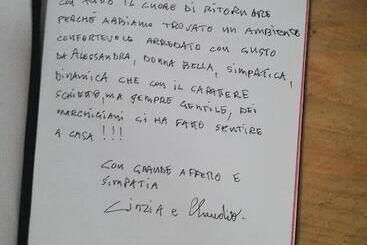 IL CUORE DI RITORNARE
PERCHÉ ABBIAMO TROVATO UN AMBIENTE
CONFORTEVOLE ARREDATO CON GUSTO
DA ALESSANDRA, DONNA BELLA, SIMPATICA,
DINAMICA CHE CON IL CARATTERE
SCHIETTO, MA SEMPRE GENTILE, DEI
MARCHIGIANI CI HA FATTO SENTIRE
A CASA !!!
CON GRANDE AFFETTO E
SIMPATIA
Cinzia e Claudio